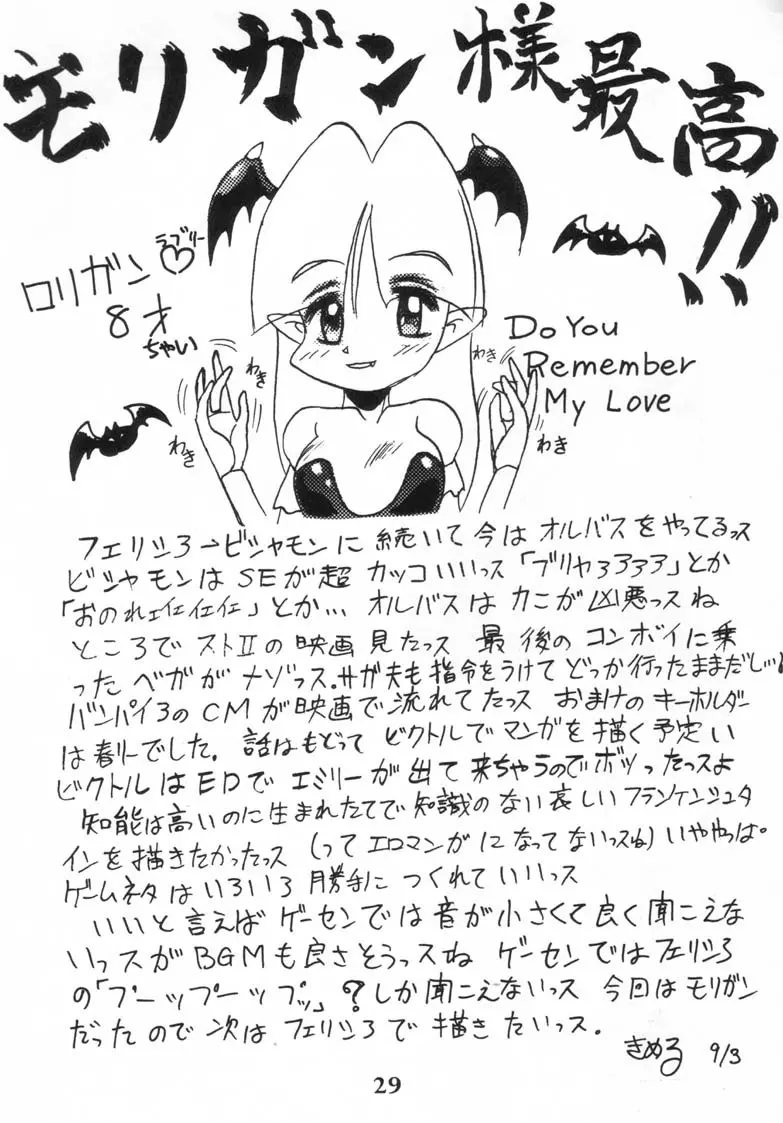 モリガン様最高!!
ラブリー
ロリガン♡
8才
ちゃい
わき
わき
わき
わき
Do You
Remember
My Love
フェリシ3→ビシャモンに続いて今はオルバスをやってるっス
ビシャモンはSEが超カッコいいっス「ブリャァァァァ」とか
「おのれェィィィィ」とか… オルバスはカニが凶悪っスね
ところでストⅡの映画見たっス 最後のコンボイに乗
ったベガがナゾっス。サガ夫も指令をうけてどっか行ったままだし…
バンパイ3のCMが映画で流れてたっス おまけのキーホルダー
は春リーでした。話はもどって ビクトルでマンガを描く予定い
ビクトルはEDでエミリーが出て来ちゃうのでボツったっスよ
知能は高いのに生まれたてで知識のない哀しいフランケンシュタ
インを描きたかったっス (ってエロマンガになってないっスね)いややっは。
ゲームネタはいろいろ勝手につくれていいっス
いいと言えばゲーセンでは音が小さくて良く聞こえな
いっスがBGMも良さそうっスね ゲーセンではフェリシ3
の「プーップーップッ」?しか聞こえないっス 今回はモリガン
だったので次はフェリシ3で描きたいっス。
きめる 9/3
29